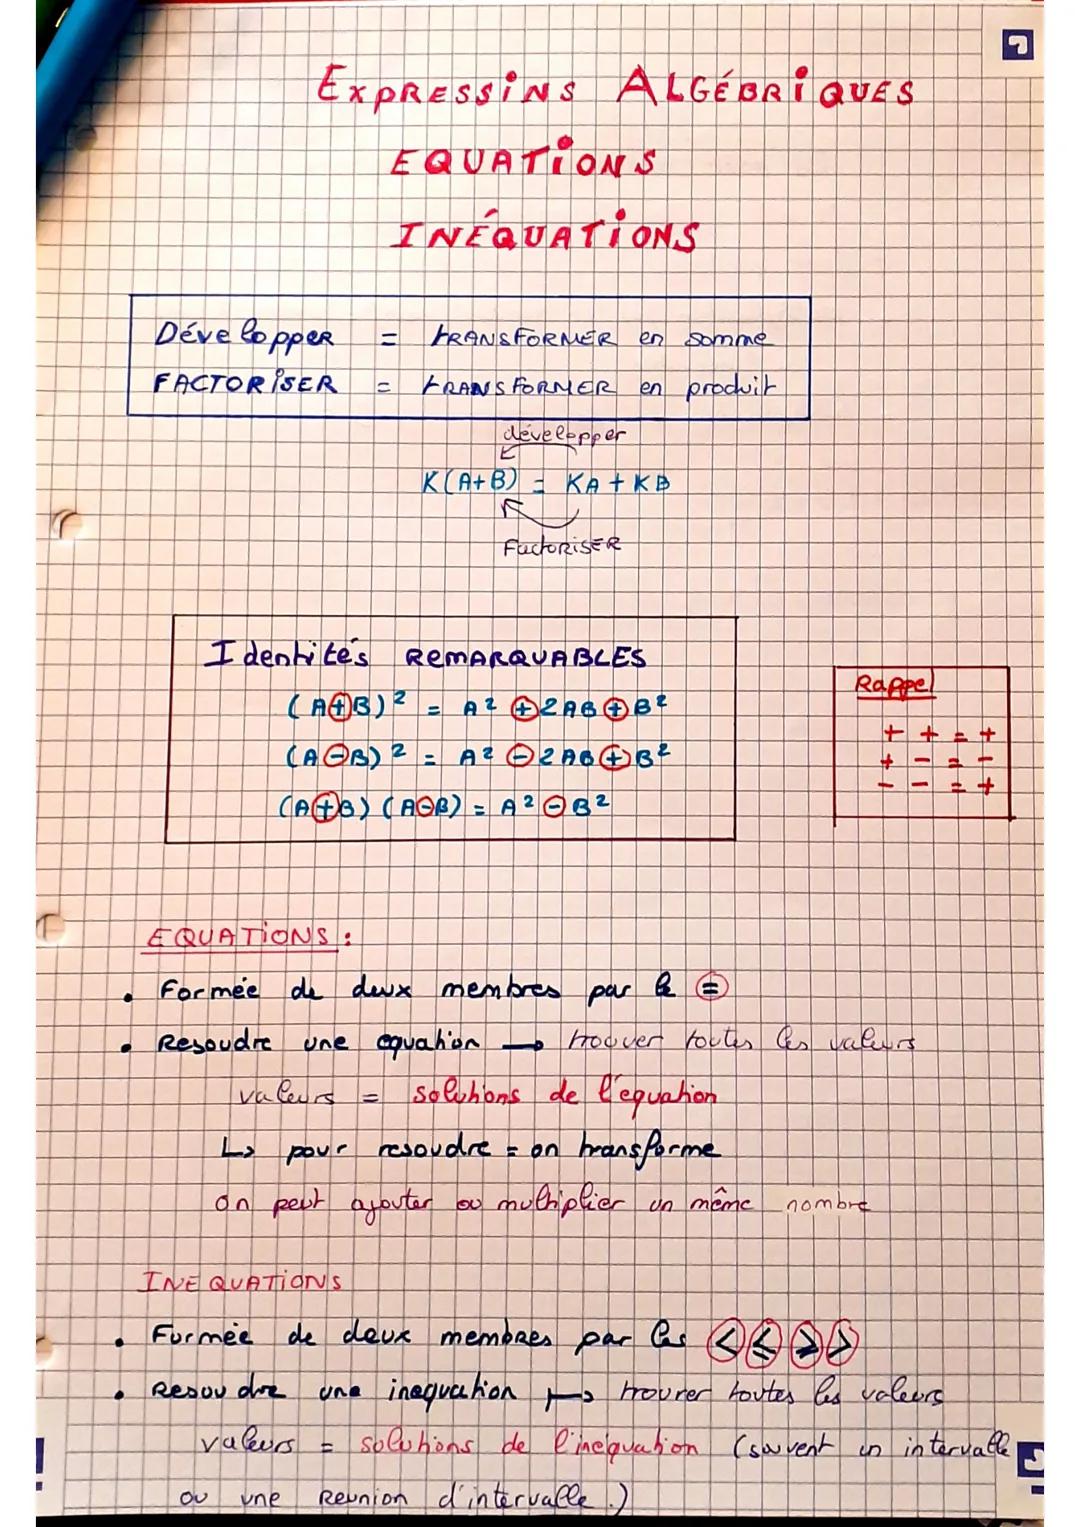 EXPRESSiNS ALGÉBRiQUES
EQUATiONS
INÉQUATiONS
Développer = tRANSFORMER en somme
FACTORiSER = tRANSFORMER en produit
développer
K(A+B) = KA + KB
FactoRiSER
Identités REMARQUABLES
(A+B)² = A² + 2AB + B²
(A-B)² = A² - 2AB + B²
(A+B) (A-B) = A² - B²
Rappel
+ + = +
+ - = -
- - = +
EQUATiONS :
• Formée de deux membres par le =
• Resoudre une equation → trouver toutes les valeurs
valeurs = solutions de l'equation
↳ pour resoudre = on transforme
on peut ajouter ou multiplier un même nombre
INEQUATiONS
• Formée de deux membres par les < ≤ ≥ >
• Resoudre une inequation → trouver toutes les valeurs
valeurs = solutions de l'inéquation (souvent un intervalle
ou une Reunion d'intervalle.)